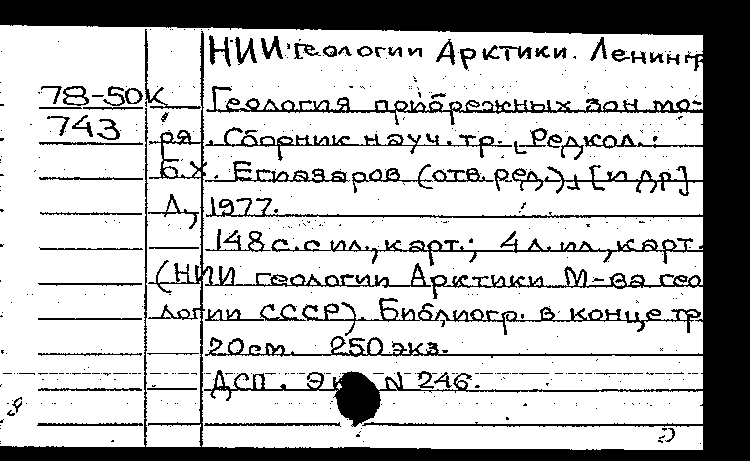 НИИ геологии Арктики. Ленингр
78-50К Геология прибрежных зон мо-
743 ря. Сборник науч. тр. [Редкол.:
Б.Х. Егиазаров (отв. ред.)] [и др]
Л., 1977.
148 с. с ил., карт.; 4 л. ил., карт.
(НИИ геологии Арктики М-ва гео
логии СССР). Библиогр. в конце тр
20 см. 250 экз.
ДСП. N 246.